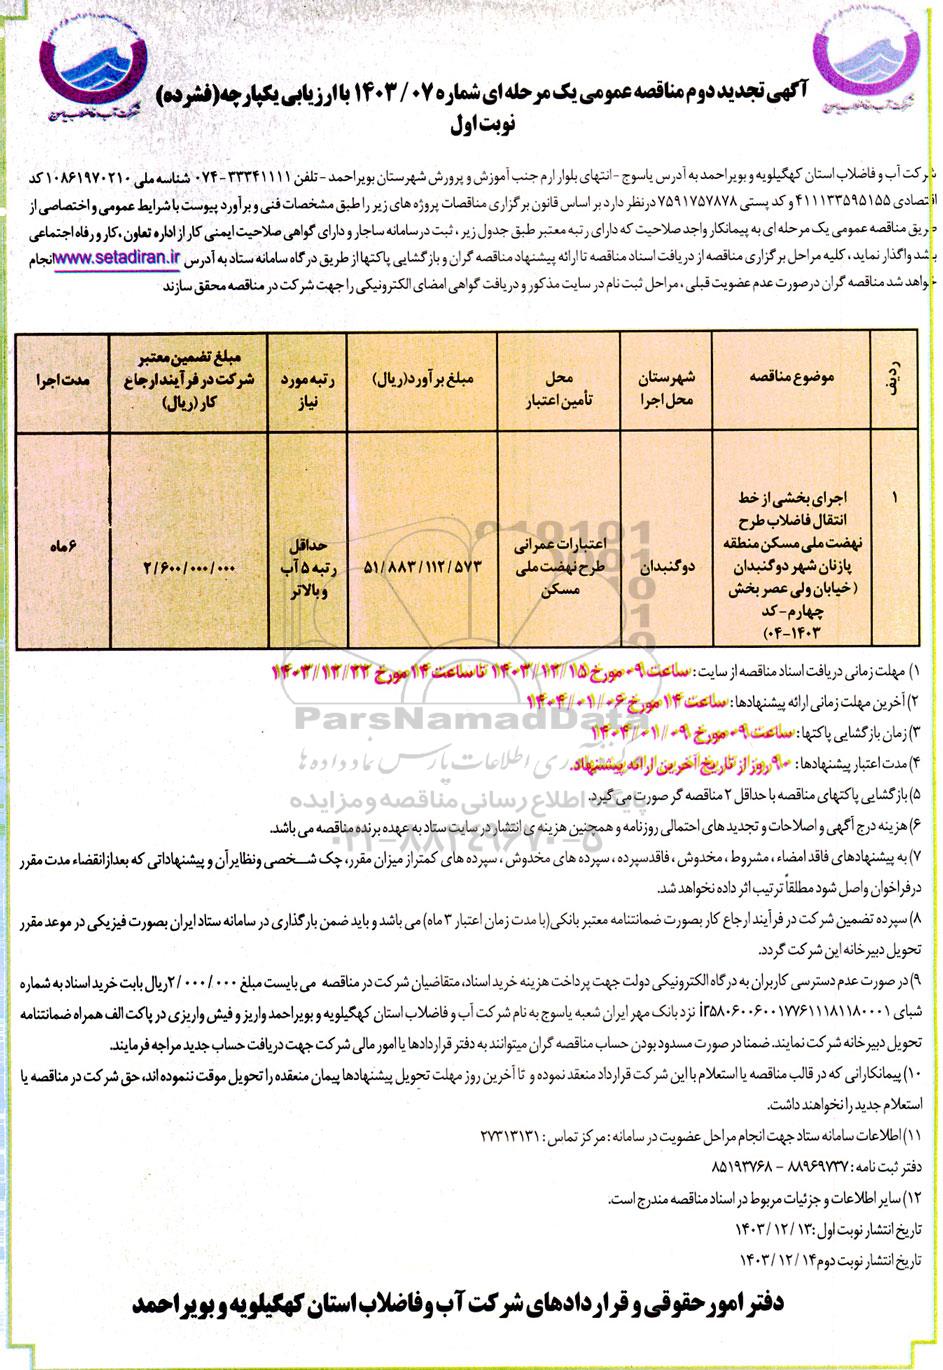 شرکت آب و فاضلاب یاسوج
آگهی تجدید دوم مناقصه عمومی یک مرحله ای شماره ۰۷ / ۱۴۰۳ با ارزیابی یکپارچه(فشرده)
نوبت اول
شرکت آب و فاضلاب استان کهگیلویه و بویراحمد به آدرس یاسوج -انتهای بلوار ارم جنب آموزش و پرورش شهرستان بویراحمد -تلفن ۳۳۳۴۱۱۱۱-۰۷۴ شناسه ملی ۱۰۸۶۱۹۷۰۲۱۰ کد
اقتصادی ۴۱۱۱۳۳۵۹۵۱۵۵ و کد پستی ۷۵۹۱۷۵۷۸۷۸ درنظر دارد بر اساس قانون برگزاری مناقصات پروژه های زیر را طبق مشخصات فنی و برآورد پیوست با شرایط عمومی و اختصاصی از
طریق مناقصه عمومی یک مرحله ای به پیمانکار واجد صلاحیت که دارای رتبه معتبر طبق جدول زیر ، ثبت در سامانه ساجار و دارای گواهی صلاحیت ایمنی کار از اداره تعاون ، کار و رفاه اجتماعی
باشد واگذار نماید ، کلیه مراحل برگزاری مناقصه از دریافت اسناد مناقصه تا ارائه پیشنهاد مناقصه گران و بازگشایی پاکتها از طریق درگاه سامانه ستاد به آدرس www.setadiran.ir انجام
خواهد شد مناقصه گران درصورت عدم عضویت قبلی ، مراحل ثبت نام در سایت مذکور و دریافت گواهی امضای الکترونیکی را جهت شرکت در مناقصه محقق سازند
ردیف
موضوع مناقصه
شهرستان
محل اجرا
محل
تأمین اعتبار
مبلغ برآورد(ریال)
رتبه مورد
نیاز
مبلغ تضمین معتبر
شرکت در فرآیند ارجاع
کار (ریال)
مدت اجرا
۱
اجرای بخشی از خط
انتقال فاضلاب طرح
نهضت ملی مسکن منطقه
پازنان شهر دوگنبدان
(خیابان ولی عصر بخش
چهارم-کد
۱۴۰۳-۰۴)
دوگنبدان
اعتبارات عمرانی
طرح نهضت ملی
مسکن
۵۱/۸۸۳/۱۱۲/۵۷۳
حداقل
رتبه ۵ آب
و بالاتر
۲/۶۰۰/۰۰۰/۰۰۰
۶ماه
۱) مهلت زمانی دریافت اسناد مناقصه از سایت: ساعت ۰۹ مورخ ۱۴۰۳/۱۲/۱۵ تا ساعت ۱۴ مورخ ۱۴۰۳/۱۲/۲۲
۲) آخرین مهلت زمانی ارائه پیشنهادها: ساعت ۱۴ مورخ ۱۴۰۴/۰۱/۰۶
۳) زمان بازگشایی پاکتها: ساعت ۰۹ مورخ ۱۴۰۴/۰۱/۰۹
ParsNamadData
۴) مدت اعتبار پیشنهادها: ۹۰ روز از تاریخ آخرین ارائه پیشنهاد.
۵) بازگشایی پاکتهای مناقصه با حداقل ۲ مناقصه گر صورت می گیرد.
پایگاه اطلاع رسانی مناقصه و مزایده
۶) هزینه درج آگهی و اصلاحات و تجدید های احتمالی روزنامه و همچنین هزینه ی انتشار در سایت ستاد به عهده برنده مناقصه می باشد.
۰۲۱-۸۸۳۴۹۶۷۰-۵
۷) به پیشنهادهای فاقد امضاء ، مشروط ، مخدوش ، فاقد سپرده ، سپرده های مخدوش ، سپرده های کمتر از میزان مقرر، چک شخصی ونظایرآن و پیشنهاداتی که بعدازانقضاء مدت مقرر
در فراخوان واصل شود مطلقاً ترتیب اثر داده نخواهد شد.
۸) سپرده تضمین شرکت در فرآیند ارجاع کار بصورت ضمانتنامه معتبر بانکی(با مدت زمان اعتبار ۳ ماه) می باشد و باید ضمن بارگذاری در سامانه ستاد ایران بصورت فیزیکی در موعد مقرر
تحویل دبیرخانه این شرکت گردد.
۹) در صورت عدم دسترسی کاربران به درگاه الکترونیکی دولت جهت پرداخت هزینه خرید اسناد، متقاضیان شرکت در مناقصه می بایست مبلغ ۲/۰۰۰/۰۰۰ریال بابت خرید اسناد به شماره
شبای ir۵۸۰۶۰۰۶۰۰۱۷۷۶۱۱۱۸۱۱۸۰۰۰۱ نزد بانک مهر ایران شعبه یاسوج به نام شرکت آب و فاضلاب استان کهگیلویه و بویراحمد واریز و فیش واریزی در پاکت الف همراه ضمانتنامه
تحویل دبیرخانه شرکت نمایند. ضمنا در صورت مسدود بودن حساب مناقصه گران میتوانند به دفتر قراردادها یا امور مالی شرکت جهت دریافت حساب جدید مراجه فرمایند.
۱۰) پیمانکارانی که در قالب مناقصه یا استعلام با این شرکت قرارداد منعقد نموده و تا آخرین روز مهلت تحویل پیشنهادها پیمان منعقده را تحویل موقت ننموده اند، حق شرکت در مناقصه یا
استعلام جدید را نخواهند داشت.
۱۱) اطلاعات سامانه ستاد جهت انجام مراحل عضویت در سامانه : مرکز تماس : ۲۷۳۱۳۱۳۱
دفتر ثبت نامه : ۸۸۹۶۹۷۳۷ - ۸۵۱۹۳۷۶۸
۱۲) سایر اطلاعات و جزئیات مربوط در اسناد مناقصه مندرج است.
تاریخ انتشار نوبت اول :۱۳ /۱۲ /۱۴۰۳
تاریخ انتشار نوبت دوم۱۴ /۱۲ /۱۴۰۳
دفتر امور حقوقی و قراردادهای شرکت آب و فاضلاب استان کهگیلویه و بویراحمد